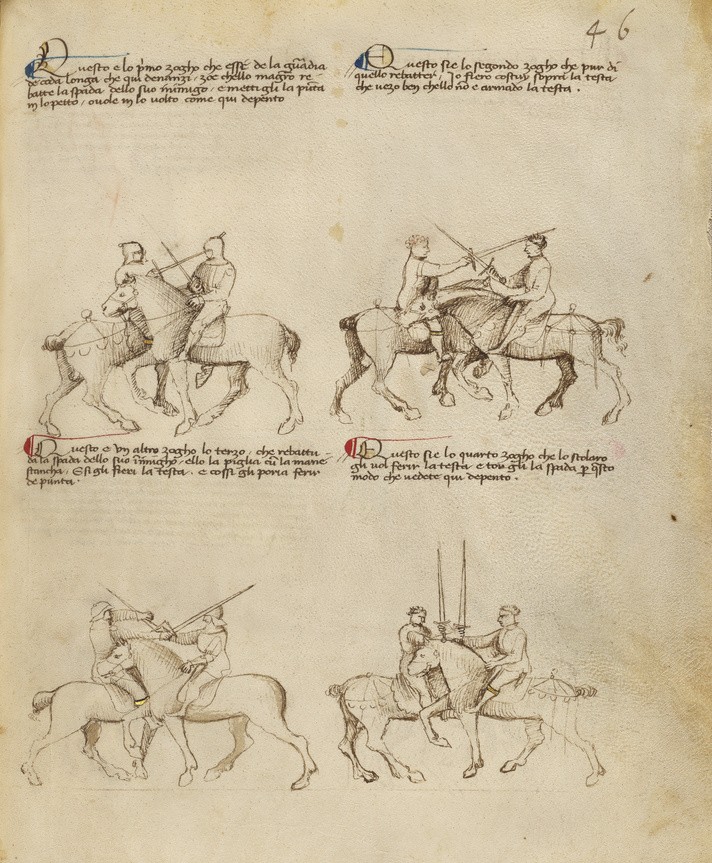 46
Questo e lo p̃mo zogho che esſe de la guãdia
de coda longa che qui denanzi, zoe chello magro re-
batte la spada dello suo inimigo, e mettigli la pũta
in lo petto, o uole in lo volto come qui depento
Questo sie lo segondo zogho che pur di
quello rebatter, Io fiero costuy sopra la testa
che uezo ben chello nõ e armado la testa.
Questo e vn altro zogho lo terzo, che rebattu-
da la spada dello suo inimigho, ello la piglia cũ la mane
stancha, E si gli fieri la testa. e cossi gli poria ferir
de punta.
Questo sie lo quarto zogho che lo scolaro
gli vol ferir la testa e tor gli la spada p̱ q̃sto
modo che uedete qui depento.